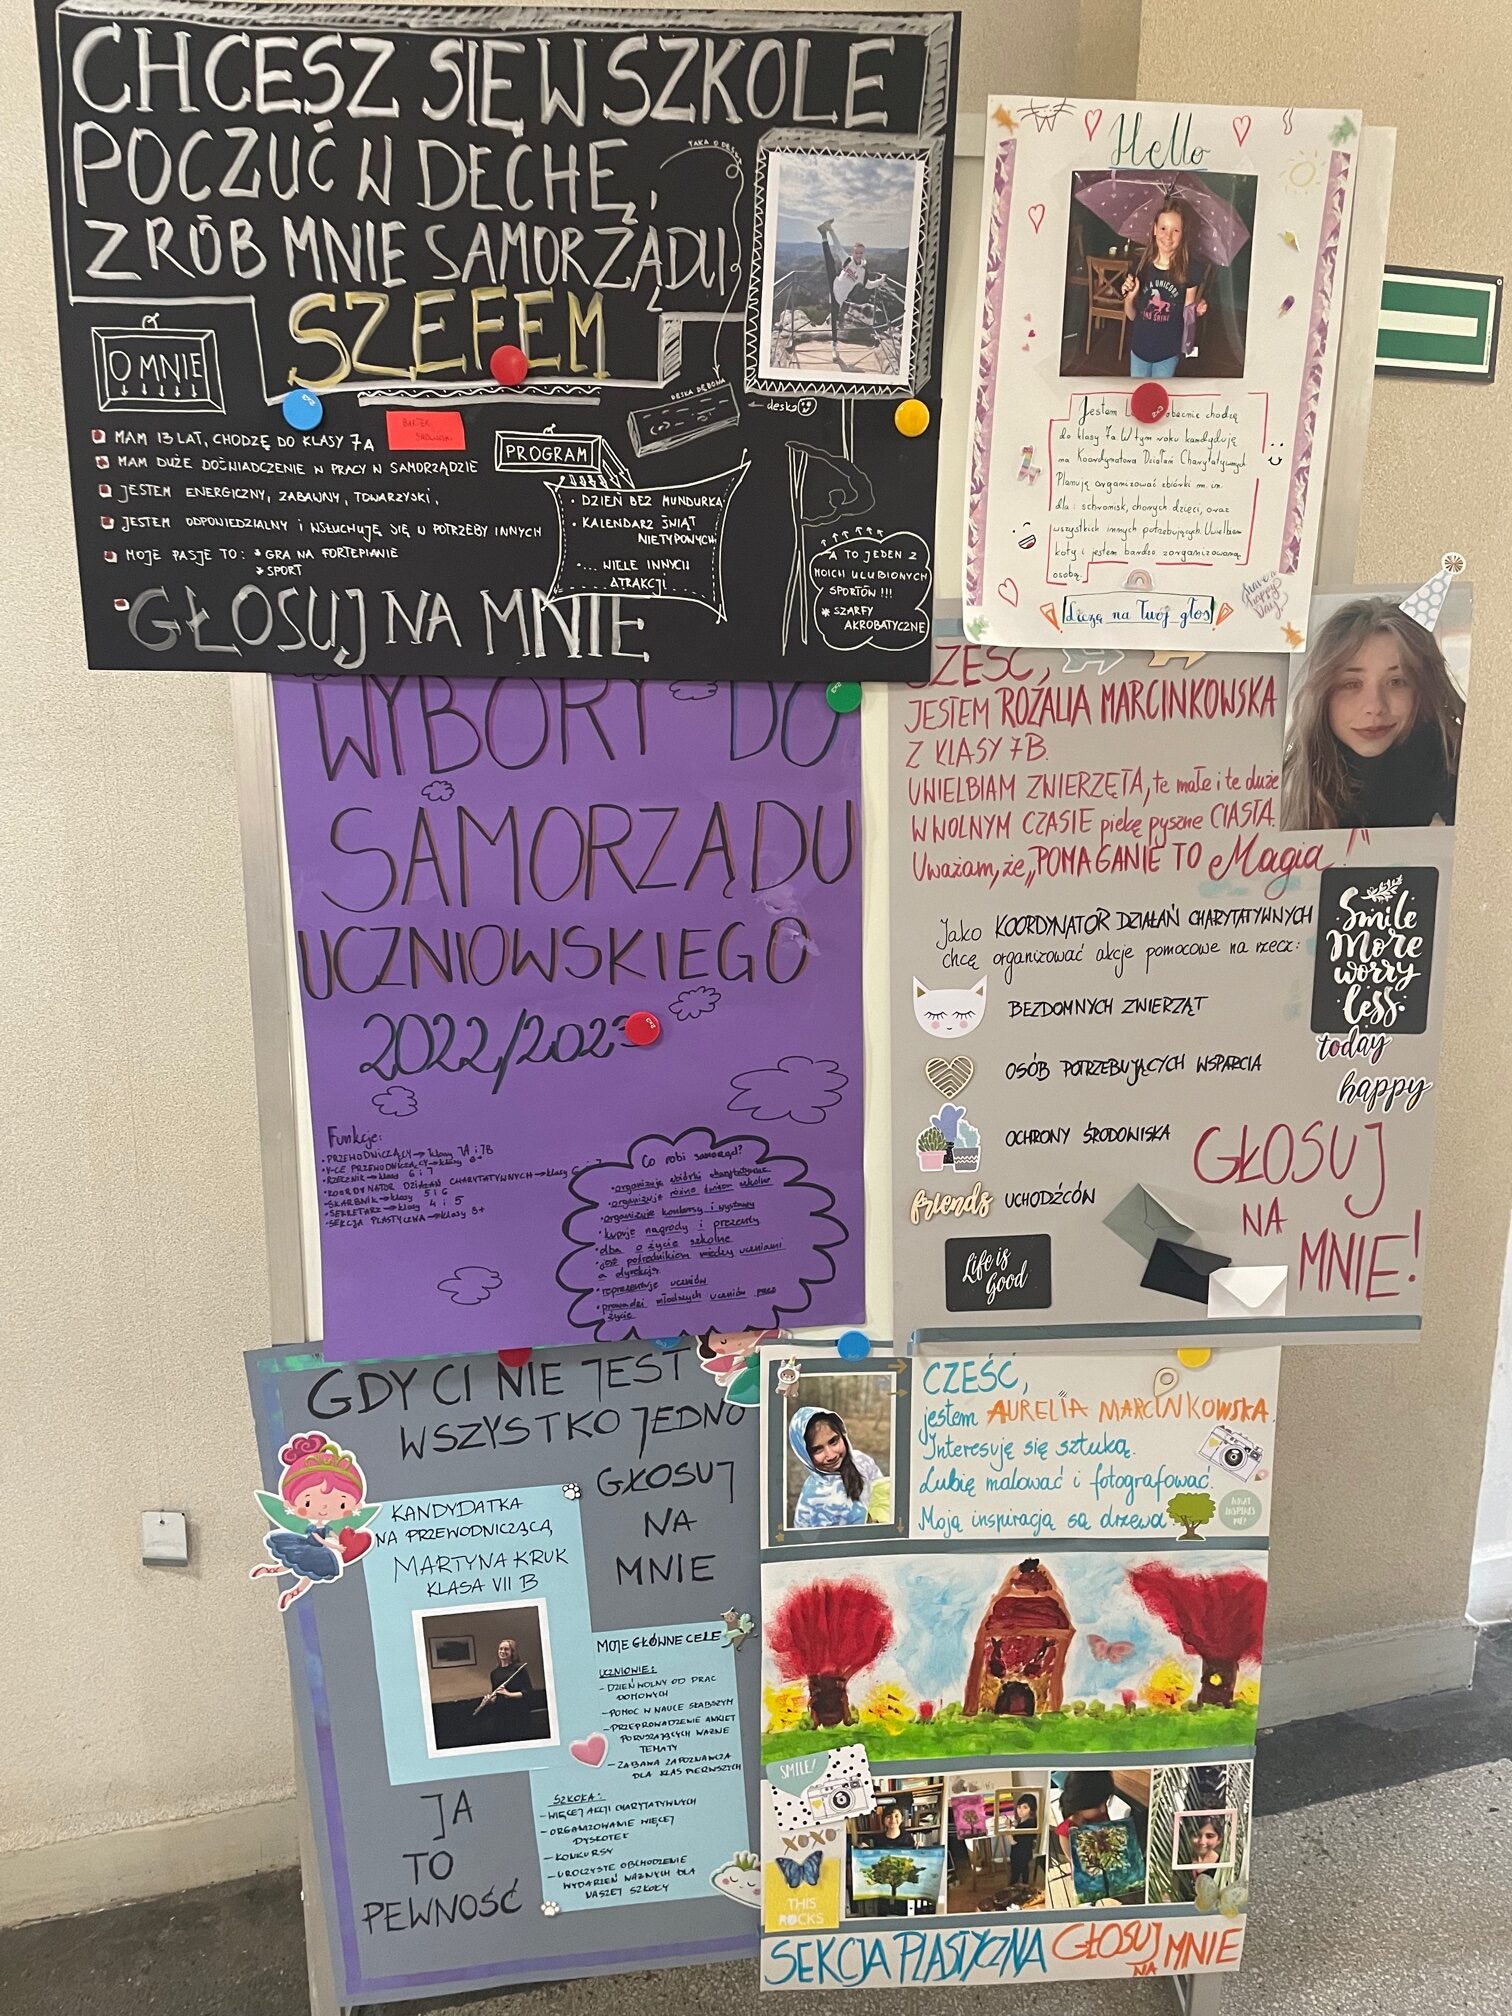 CHCESZ SIĘ W SZKOLE
POCZUĆ W DECHĘ,
ZRÓB MNIE SAMORZĄDU
SZEFEM
TAKA O DESKA
DESKA DĘBOWA
← deska
O MNIE
MAM 13 LAT, CHODZĘ DO KLASY 7A
MAM DUŻE DOŚWIADCZENIE W PRACY W SAMORZĄDZIE
JESTEM ENERGICZNY, ZABAWNY, TOWARZYSKI,
JESTEM ODPOWIEDZIALNY I WSŁUCHUJĘ SIĘ W POTRZEBY INNYCH
MOJE PASJE TO: * GRA NA FORTEPIANIE
* SPORT
GŁOSUJ NA MNIE
PROGRAM
• DZIEŃ BEZ MUNDURKA
• KALENDARZ ŚWIĄT
NIETYPOWYCH
•... WIELE INNYCH
ATRAKCJI
A TO JEDEN Z
MOICH ULUBIONYCH
SPORTÓW !!!
* SZARFY
AKROBATYCZNE
Hello
Jestem obecnie chodzę
do klasy 7a W tym roku kandyduję
na Koordynatora Działań Charytatywnych
Planuję organizować zbiórki m. in.
dla: schronisk, chorych dzieci, oraz
wszystkich innych potrzebujących. Uwielbiam
koty i jestem bardzo zorganizowaną
osobą.
Liczę na Twój głos!
have a
happy
day
WYBORY DO
SAMORZĄDU
UCZNIOWSKIEGO
2022/2023
Funkcje:
• PRZEWODNICZĄCY → klasy 7A i 7B
• V-CE PRZEWODNICZĄCY → klasy 6+
• RZECZNIK → klasy 6 i 7
• KOORDYNATOR DZIAŁAŃ CHARYTATYWNYCH → klasy 6 i 7
• SKARBNIK → klasy 5 i 6
• SEKRETARZ → klasy 4 i 5
• SEKCJA PLASTYCZNA → klasy 3+
Co robi samorząd?
• organizuje zbiórki charytatywne
• organizuje różne święta szkolne
• organizuje konkursy i wystawy
• kupuje nagrody i prezenty
• dba o życie szkolne
• jest pośrednikiem między uczniami
a dyrekcją
• reprezentuje uczniów
• prowadzi młodszych uczniów przez
życie
CZEŚĆ,
JESTEM ROZALIA MARCINKOWSKA
Z KLASY 7B.
UWIELBIAM ZWIERZĘTA, te małe i te duże
W WOLNYM CZASIE piekę pyszne CIASTA.
Uważam, że „POMAGANIE TO Magia!"
Jako KOORDYNATOR DZIAŁAŃ CHARYTATYWNYCH
chcę organizować akcje pomocowe na rzecz:
BEZDOMNYCH ZWIERZĄT
OSÓB POTRZEBUJĄCYCH WSPARCIA
OCHRONY ŚRODOWISKA
friends
UCHODŹCÓW
Life is
Good
Smile
More
worry
less.
today
happy
GŁOSUJ
NA
MNIE!
GDY CI NIE JEST
WSZYSTKO JEDNO
GŁOSUJ
NA
MNIE
KANDYDATKA
NA PRZEWODNICZĄCĄ
MARTYNA KRUK
KLASA VII B
JA
TO
PEWNOŚĆ
MOJE GŁÓWNE CELE
UCZNIOWIE:
- DZIEŃ WOLNY OD PRAC
DOMOWYCH
- POMOC W NAUCE SŁABSZYM
- PRZEPROWADZENIE ANKIET
PORUSZAJĄCYCH WAŻNE
TEMATY
- ZABAWA ZAPOZNAWCZA
DLA KLAS PIERWSZYCH
SZKOŁA:
- WIĘCEJ AKCJI CHARYTATYWNYCH
- ORGANIZOWANIE WIĘCEJ
DYSKOTEK
- KONKURSY
- UROCZYSTE OBCHODZENIE
WYDARZEŃ WAŻNYCH DLA
NASZEJ SZKOŁY
CZEŚĆ,
jestem AURELIA MARCINKOWSKA.
Interesuję się sztuką.
Lubię malować i fotografować.
Moją inspiracją są drzewa
WHAT
INSPIRES
ME?
SMILE!
XOXO
THIS
ROCKS
SEKCJA PLASTYCZNA GŁOSUJ NA MNIE